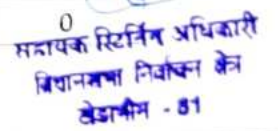 0
सहायक रिटर्निंग अधिकारी
विधानसभा निर्वाचन क्षेत्र
- 81